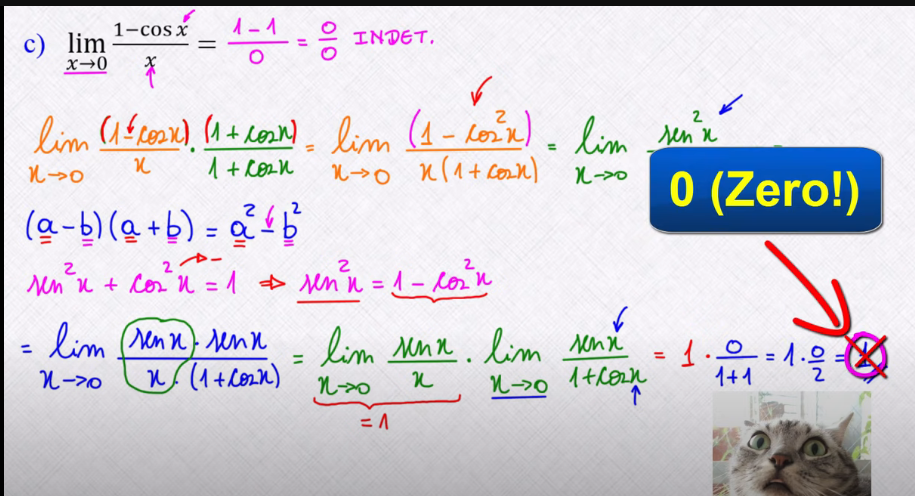 c) lim x→0 1−cos x / x = 1−1 / 0 = 0/0 INDET.
lim x→0 (1−cos x)/x · (1+cos x)/1+cos x = lim x→0 (1−cos²x)/x(1+cos x) = lim x→0 sen²x
0 (Zero!)
(a−b)(a+b) = a²−b²
sen²x + cos²x = 1 ⇒ sen²x = 1−cos²x
= lim x→0 sen x · sen x / x · (1+cos x) = lim x→0 sen x / x · lim x→0 sen x / 1+cos x = 1 · 0/1+1 = 1 · 0/2 = 1
= 1